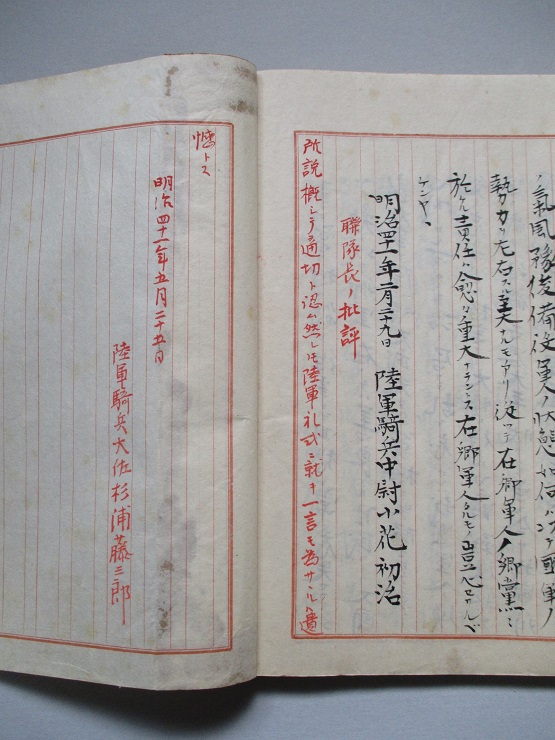 ノ氣風豫後備役軍人ノ状態如何ハ國軍ノ
勢力ヲ左右スル重大ナルモノアリ從ツテ在郷軍人ノ郷黨ニ
於ケル責任ハ愈々重大ナランス在郷軍人タルモノ豈忘ルベ
ケンヤ
明治四十一年二月二十九日 陸軍騎兵中尉小花初治
聯隊長ノ批評
所説概シテ適切ト認ム然レトモ陸軍礼式ニ就キ一言モ為サヾルハ遺
憾トス
明治四十一年五月二十五日
陸軍騎兵大佐杉浦藤三郎